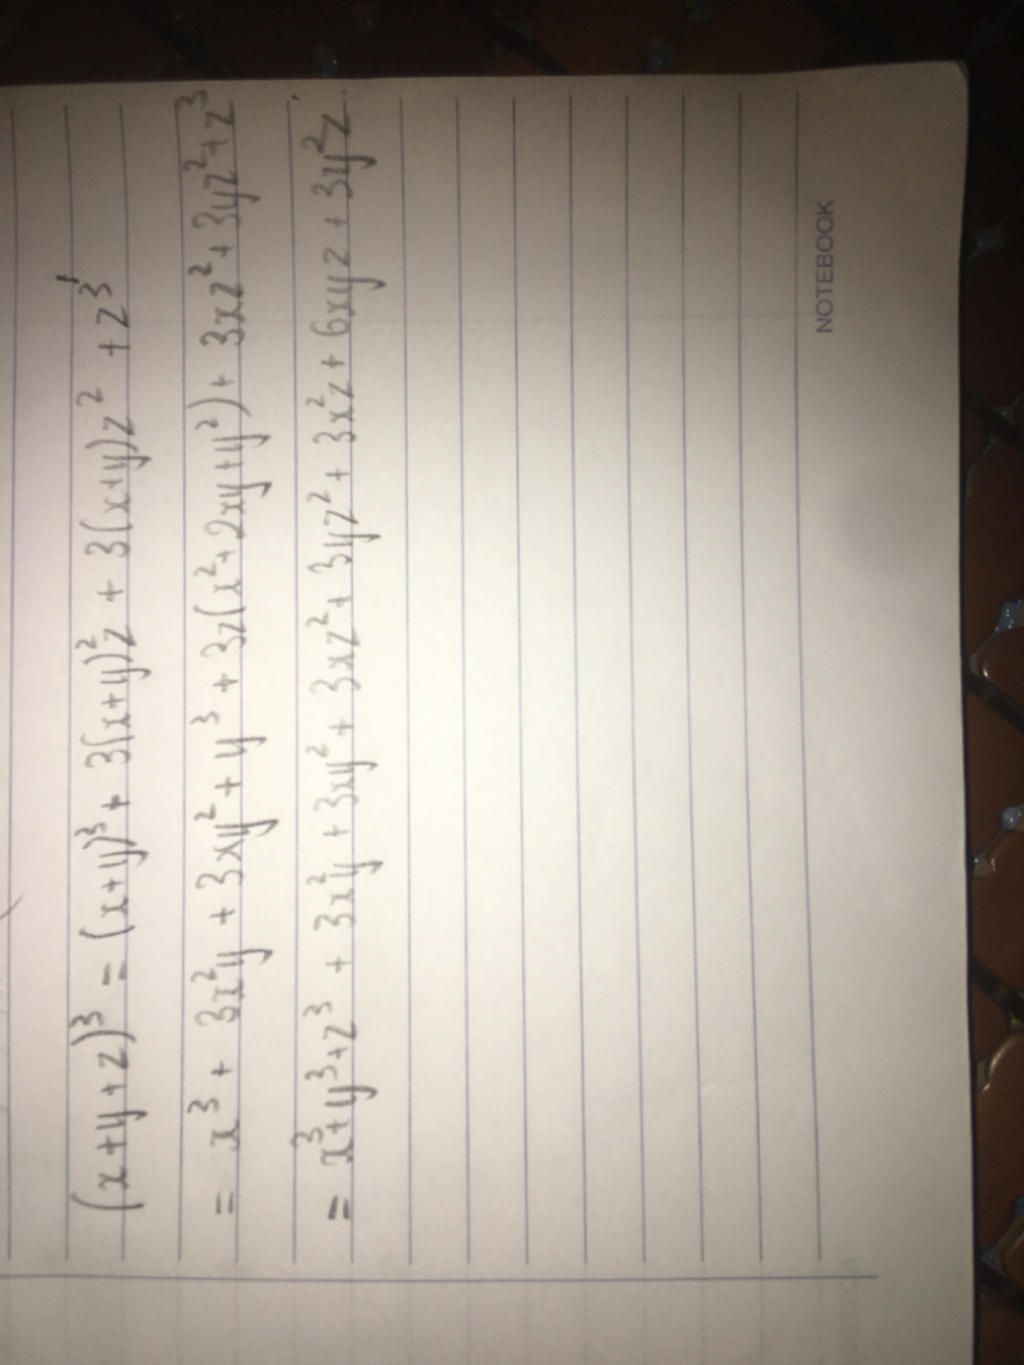 (x+y+z)³ = (x+y)³ + 3(x+y)²z + 3(x+y)z² + z³
= x³ + 3x²y + 3xy² + y³ + 3z(x²+2xy+y²) + 3xz² + 3yz² + z³
= x³+y³+z³ + 3x²y + 3xy² + 3xz² + 3yz² + 3x²z + 6xyz + 3y²z
NOTEBOOK